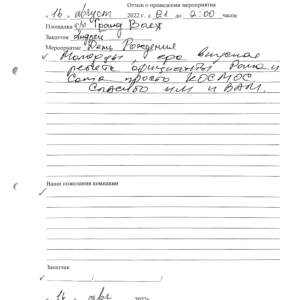 Отзыв о проведении мероприятия
« 16 » август 2022 г. с 21 до 2:00 часов
Площадка б/р Гранд Волж
Заказчик Андрей
Мероприятие День Рождения
Молодцы, еда вкусная
ребята официанты Рома и
Саша просто КОСМОС.
Спасибо им и ВАМ.
Ваши пожелания компании
Заказчик
/ /
« 16 » авг 2022г.